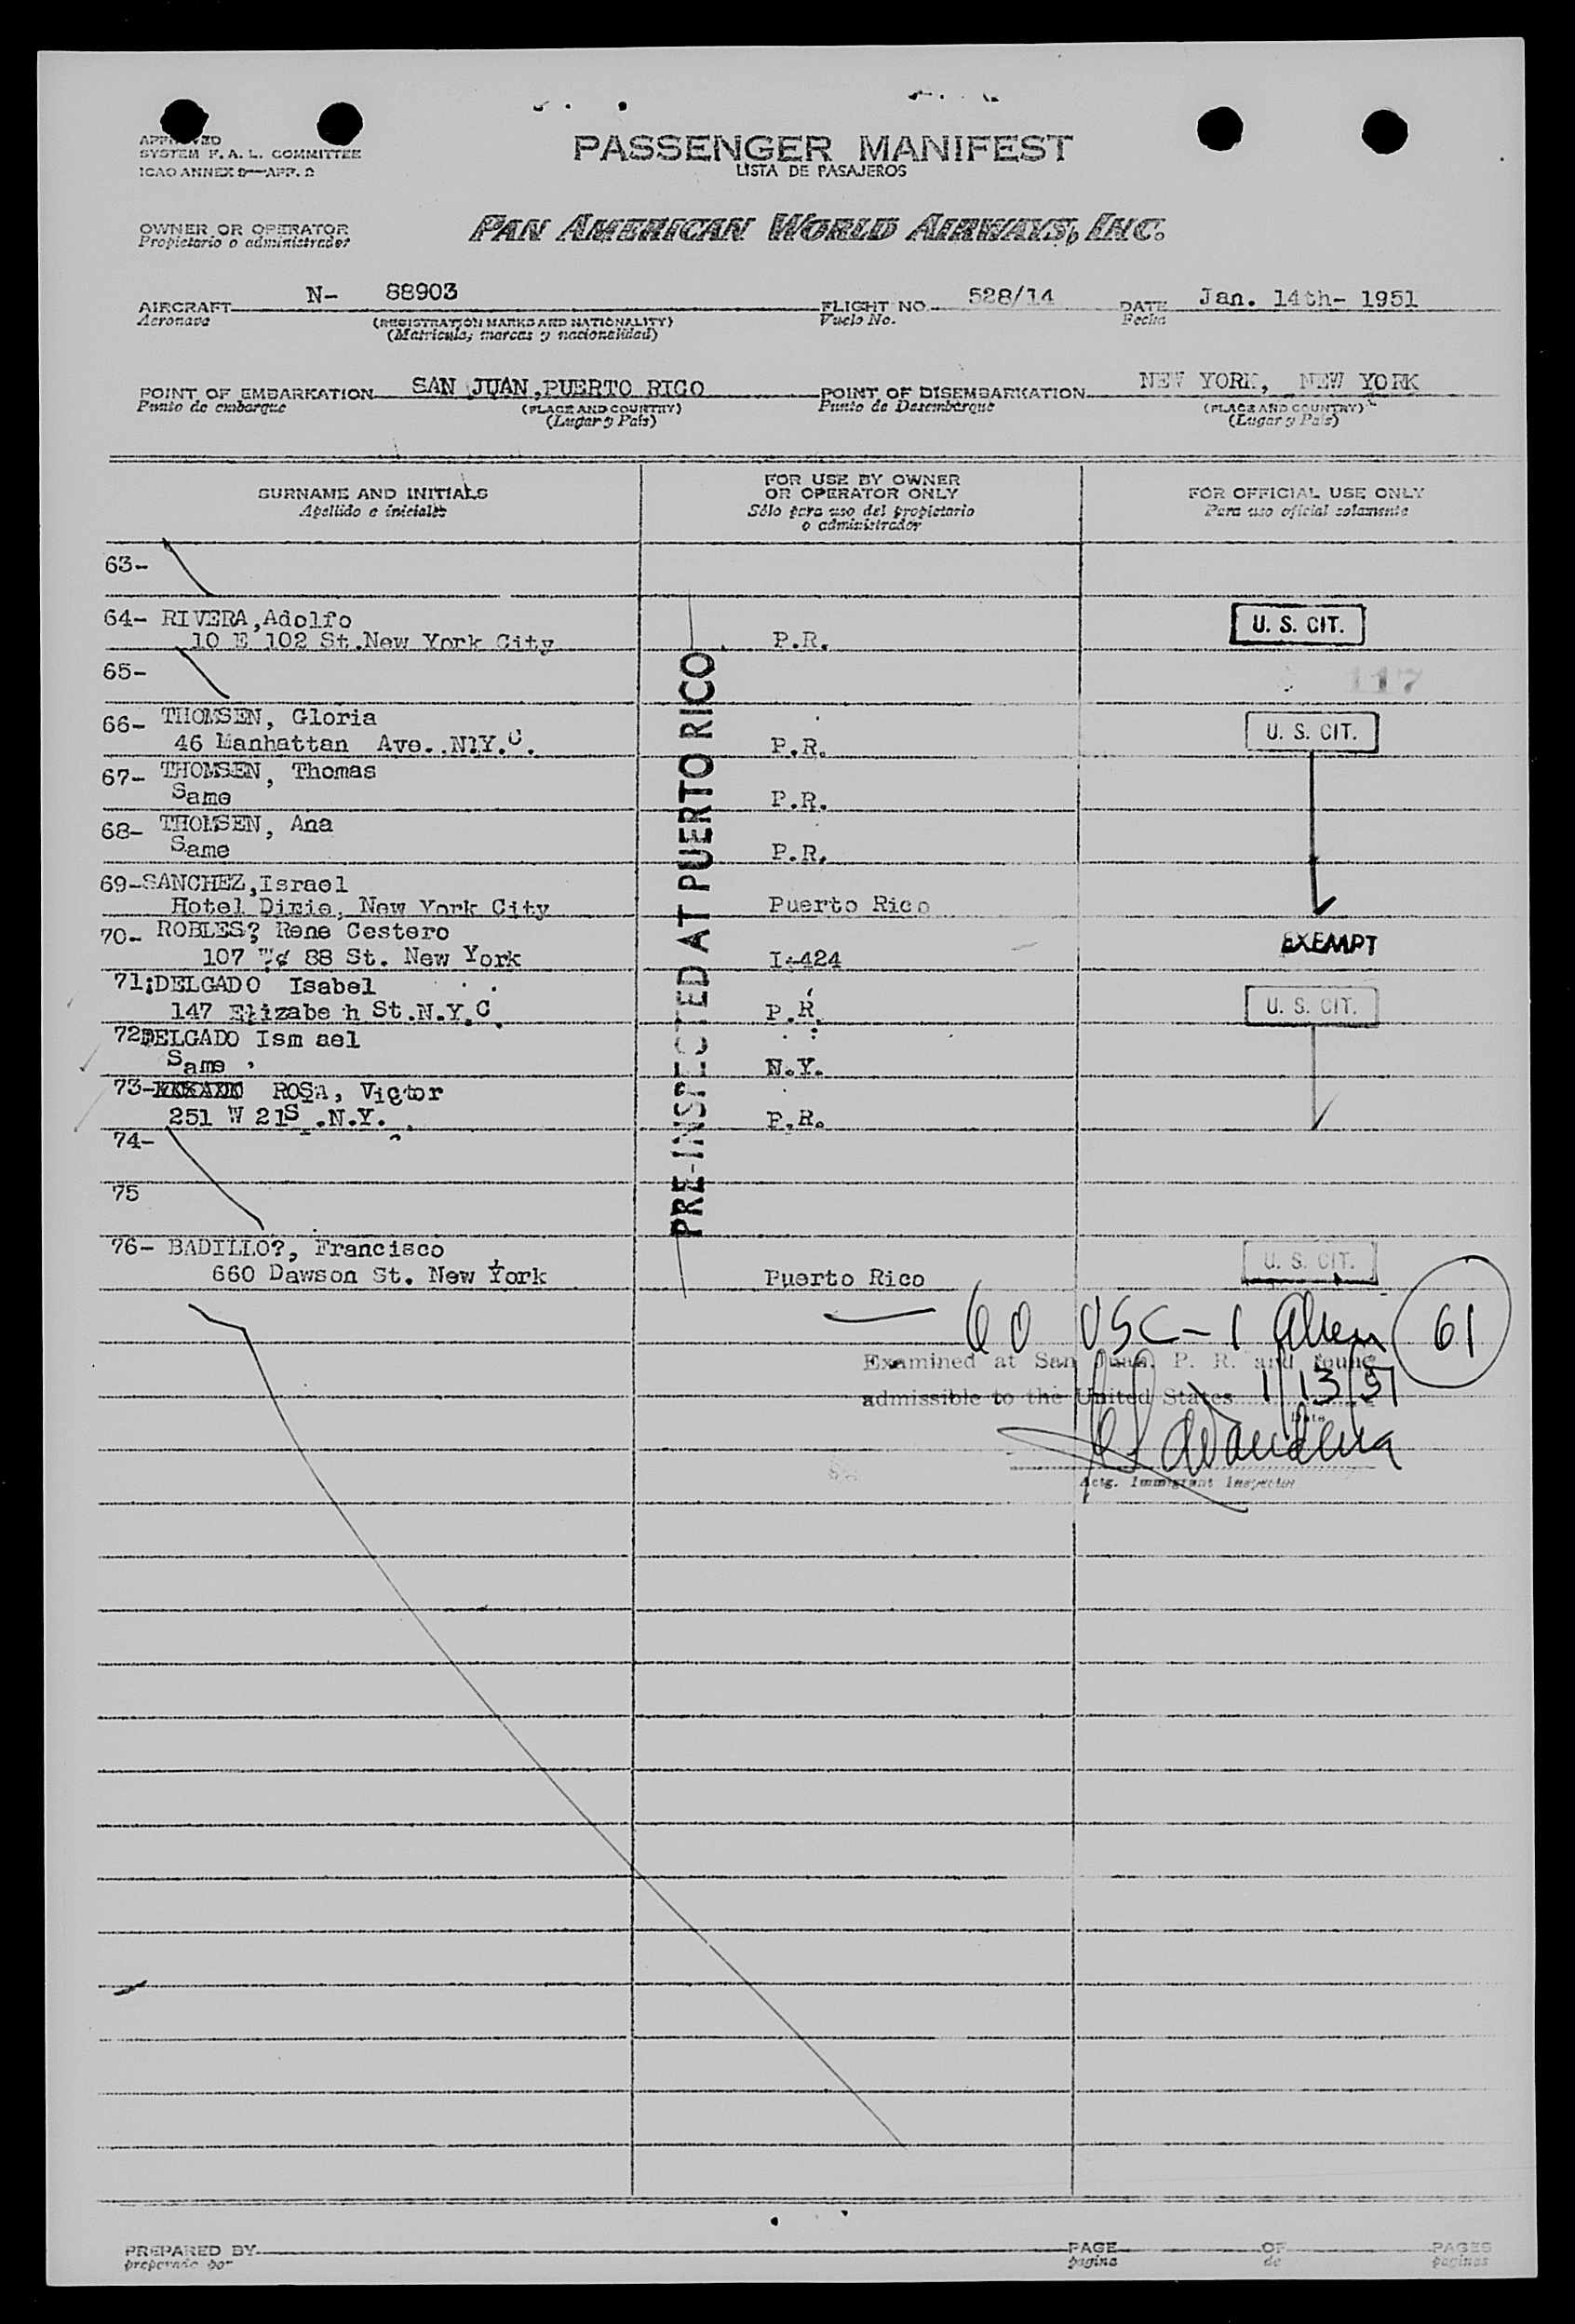 APPROVED
SYSTEM F. A. L. COMMITTEE
ICAO ANNEX 9—APP. 2
PASSENGER MANIFEST
LISTA DE PASAJEROS
OWNER OR OPERATOR
Propietario o administrador
PAN AMERICAN WORLD AIRWAYS, INC.
AIRCRAFT N- 88903 FLIGHT NO. 528/14 DATE Jan. 14th- 1951
Aeronave (REGISTRATION MARKS AND NATIONALITY) Vuelo No. Fecha
(Matricula, marcas y nacionalidad)
POINT OF EMBARKATION SAN JUAN, PUERTO RICO POINT OF DISEMBARKATION NEW YORK, NEW YORK
Punto de embarque (PLACE AND COUNTRY) Punto de Desembarque (PLACE AND COUNTRY)
(Lugar y País) (Lugar y País)
SURNAME AND INITIALS FOR USE BY OWNER OR OPERATOR ONLY FOR OFFICIAL USE ONLY
Apellido e iniciales Sólo para uso del propietario o administrador Para uso oficial solamente
63-
64- RIVERA,Adolfo U. S. CIT.
10 E 102 St.New York City P.R.
65- 117
66- THOMSEN, Gloria U. S. CIT.
46 Manhattan Ave. N.Y.C. P.R.
67- THOMSEN, Thomas
Same P.R.
68- THOMSEN, Ana
Same P.R.
69-SANCHEZ,Israel
Hotel Dixie, New York City Puerto Rico
70- ROBLES? Rene Cestero EXEMPT
107 W 88 St. New York I-424
71;DELGADO Isabel U. S. CIT.
147 Elizabe h St.N.Y.C. P.R.
72DELGADO Ism ael
Same N.Y.
73- ROSA, Victor
251 W 21S .N.Y. P.R.
74-
75
76- BADILLO?, Francisco U. S. CIT.
660 Dawson St. New York Puerto Rico
PRE-INSPECTED AT PUERTO RICO
60 USC - 1 Alien 61
Examined at San Juan, P. R. and found
admissible to the United States 1/13/51
Date
Actg. Immigrant Inspector
PREPARED BY PAGE OF PAGES
preparado por pagina de paginas